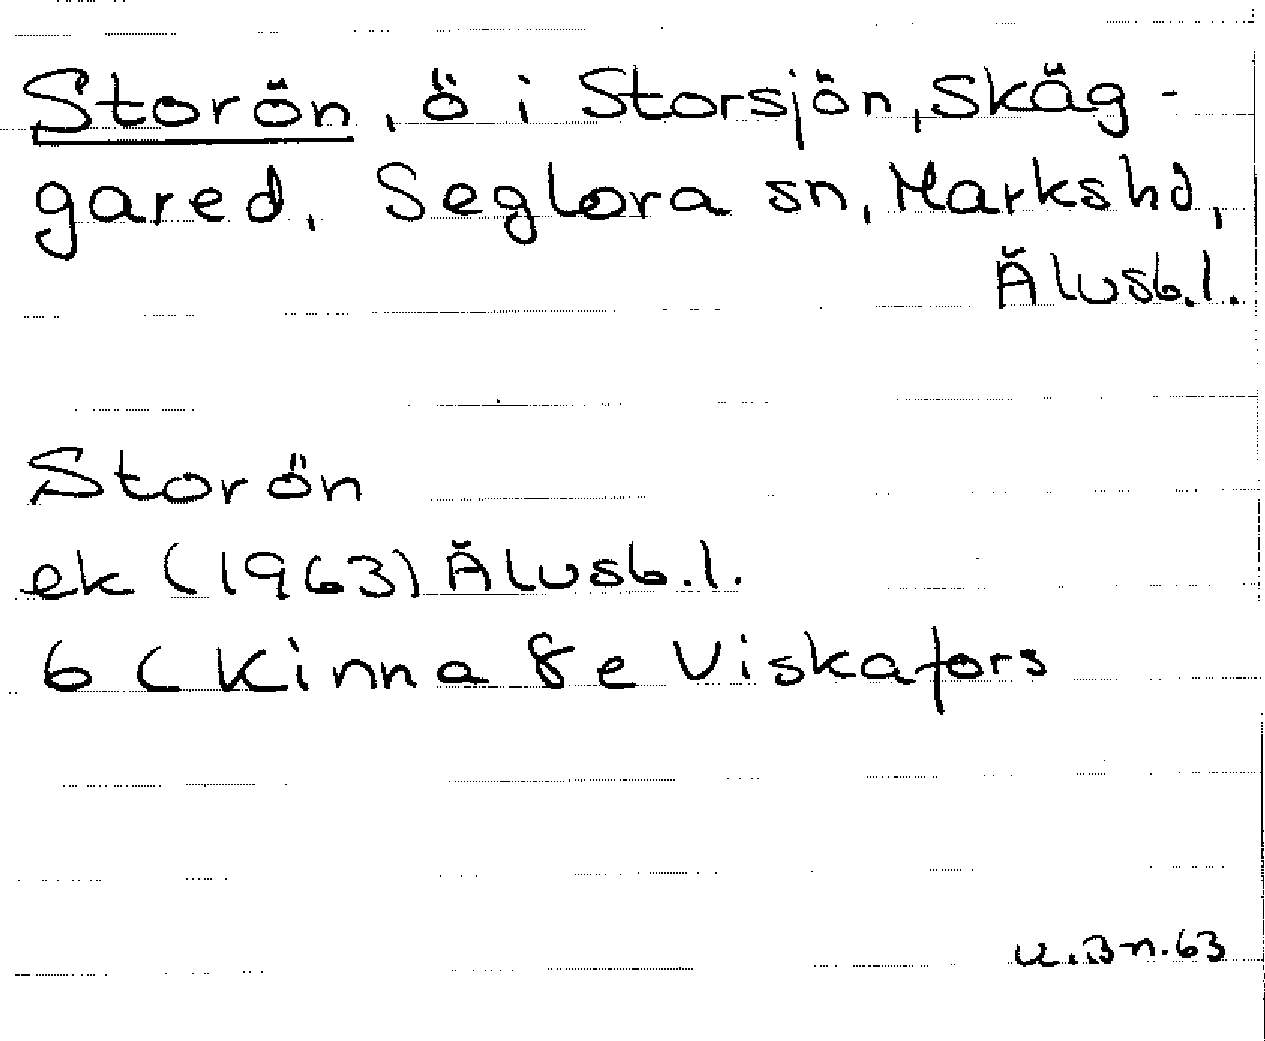 Storön, ö i Storsjön, Skäg-
gared, Seglora sn, Markshd,
Älvsb.l.
Storön
ek (1963) Älvsb.l.
6 ( Kinna 8e Viskafors
U.Bn.63